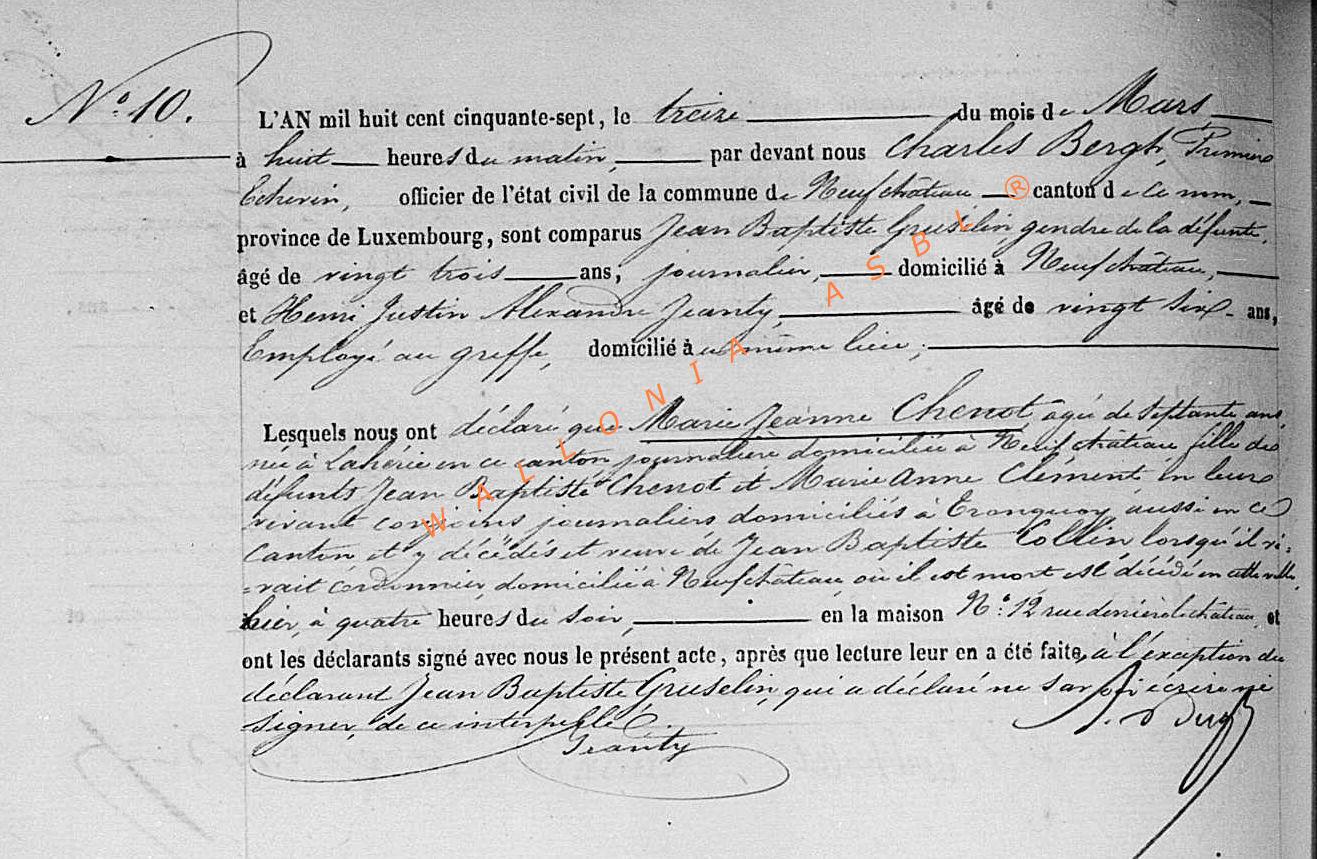 N.° 10.
L'AN mil huit cent cinquante-sept, le treize du mois de Mars,
à huit heures du matin, par devant nous Charles Bergh, Premier
Echevin, officier de l'état civil de la commune de Neufchâteau canton de ce nom,
province de Luxembourg, sont comparus Jean Baptiste Gruselin, gendre de la défunte,
âgé de vingt trois ans, journalier, domicilié à Neufchâteau,
et Henri Justin Alexandre Jeanty, âgé de vingt six ans,
Employé au greffe, domicilié à même lieu;
Lesquels nous ont déclaré que Marie Jeanne Chenot, âgée de septante ans
née à Lahérie en ce canton journalière domiciliée à Neufchâteau fille des
défunts Jean Baptiste Chenot et Marie Anne Clément en leur
vivant conjoins journaliers domiciliés à Tronquoy, aussi en ce
Canton et y décédés et veuve de Jean Baptiste Collin lorsqu'il vi=
=vait cordonnier, domicilié à Neufchâteau, où il est mort est décédée en cette ville,
hier, à quatre heures du soir, en la maison N.° 12 rue derrière le château, et
ont les déclarants signé avec nous le présent acte, après que lecture leur en a été faite, à l'exception du
déclarant Jean Baptiste Gruselin, qui a déclaré ne savoir écrire ni
signer, de ce interpellé.
Jeanty
WALLONIA ASBL ®